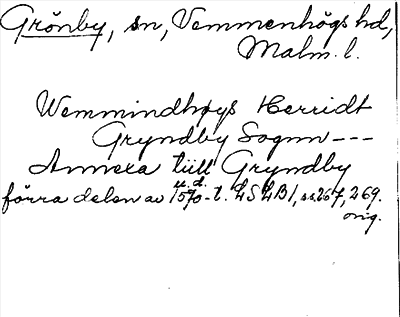 Grönby, sn, Vemmenhögs hd,
Malm. l.
Wemmindhøys Herridt
Gryndby Sognn ---
Annexa tüll Gryndby
u. d.
förra delen av 1570-t. LSLB1, ss. 267, 269.
orig.